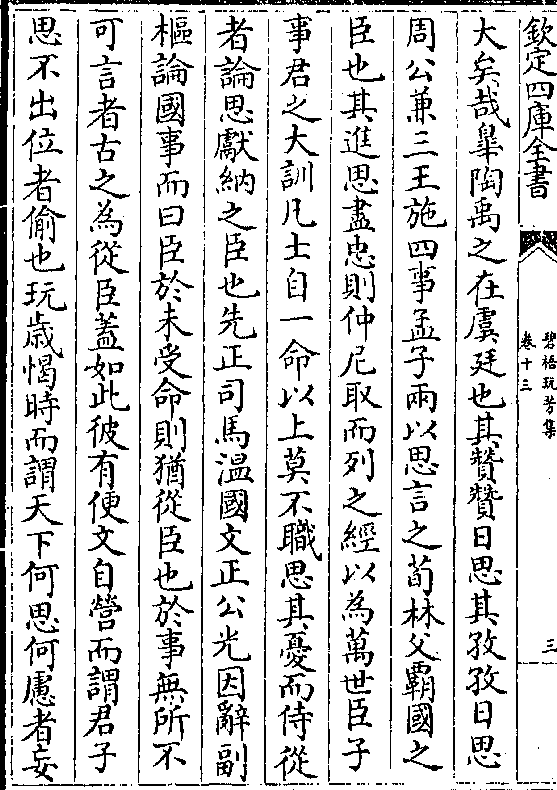 欽定四庫全書
碧梧玩芳集
卷十三
三
大矣哉臯陶禹之在虞廷也其贊贊日思其孜孜日思
周公兼三王施四事孟子兩以思言之荀林父霸國之
臣也其進思盡忠則仲尼取而列之經以為萬世臣子
事君之大訓凡士自一命以上莫不職思其憂而侍從
者論思獻納之臣也先正司馬溫國文正公光因辭副
樞論國事而曰臣於未受命則猶從臣也於事無所不
可言者古之為從臣蓋如此彼有便文自營而謂君子
思不出位者偷也玩歲愒時而謂天下何思何慮者妄